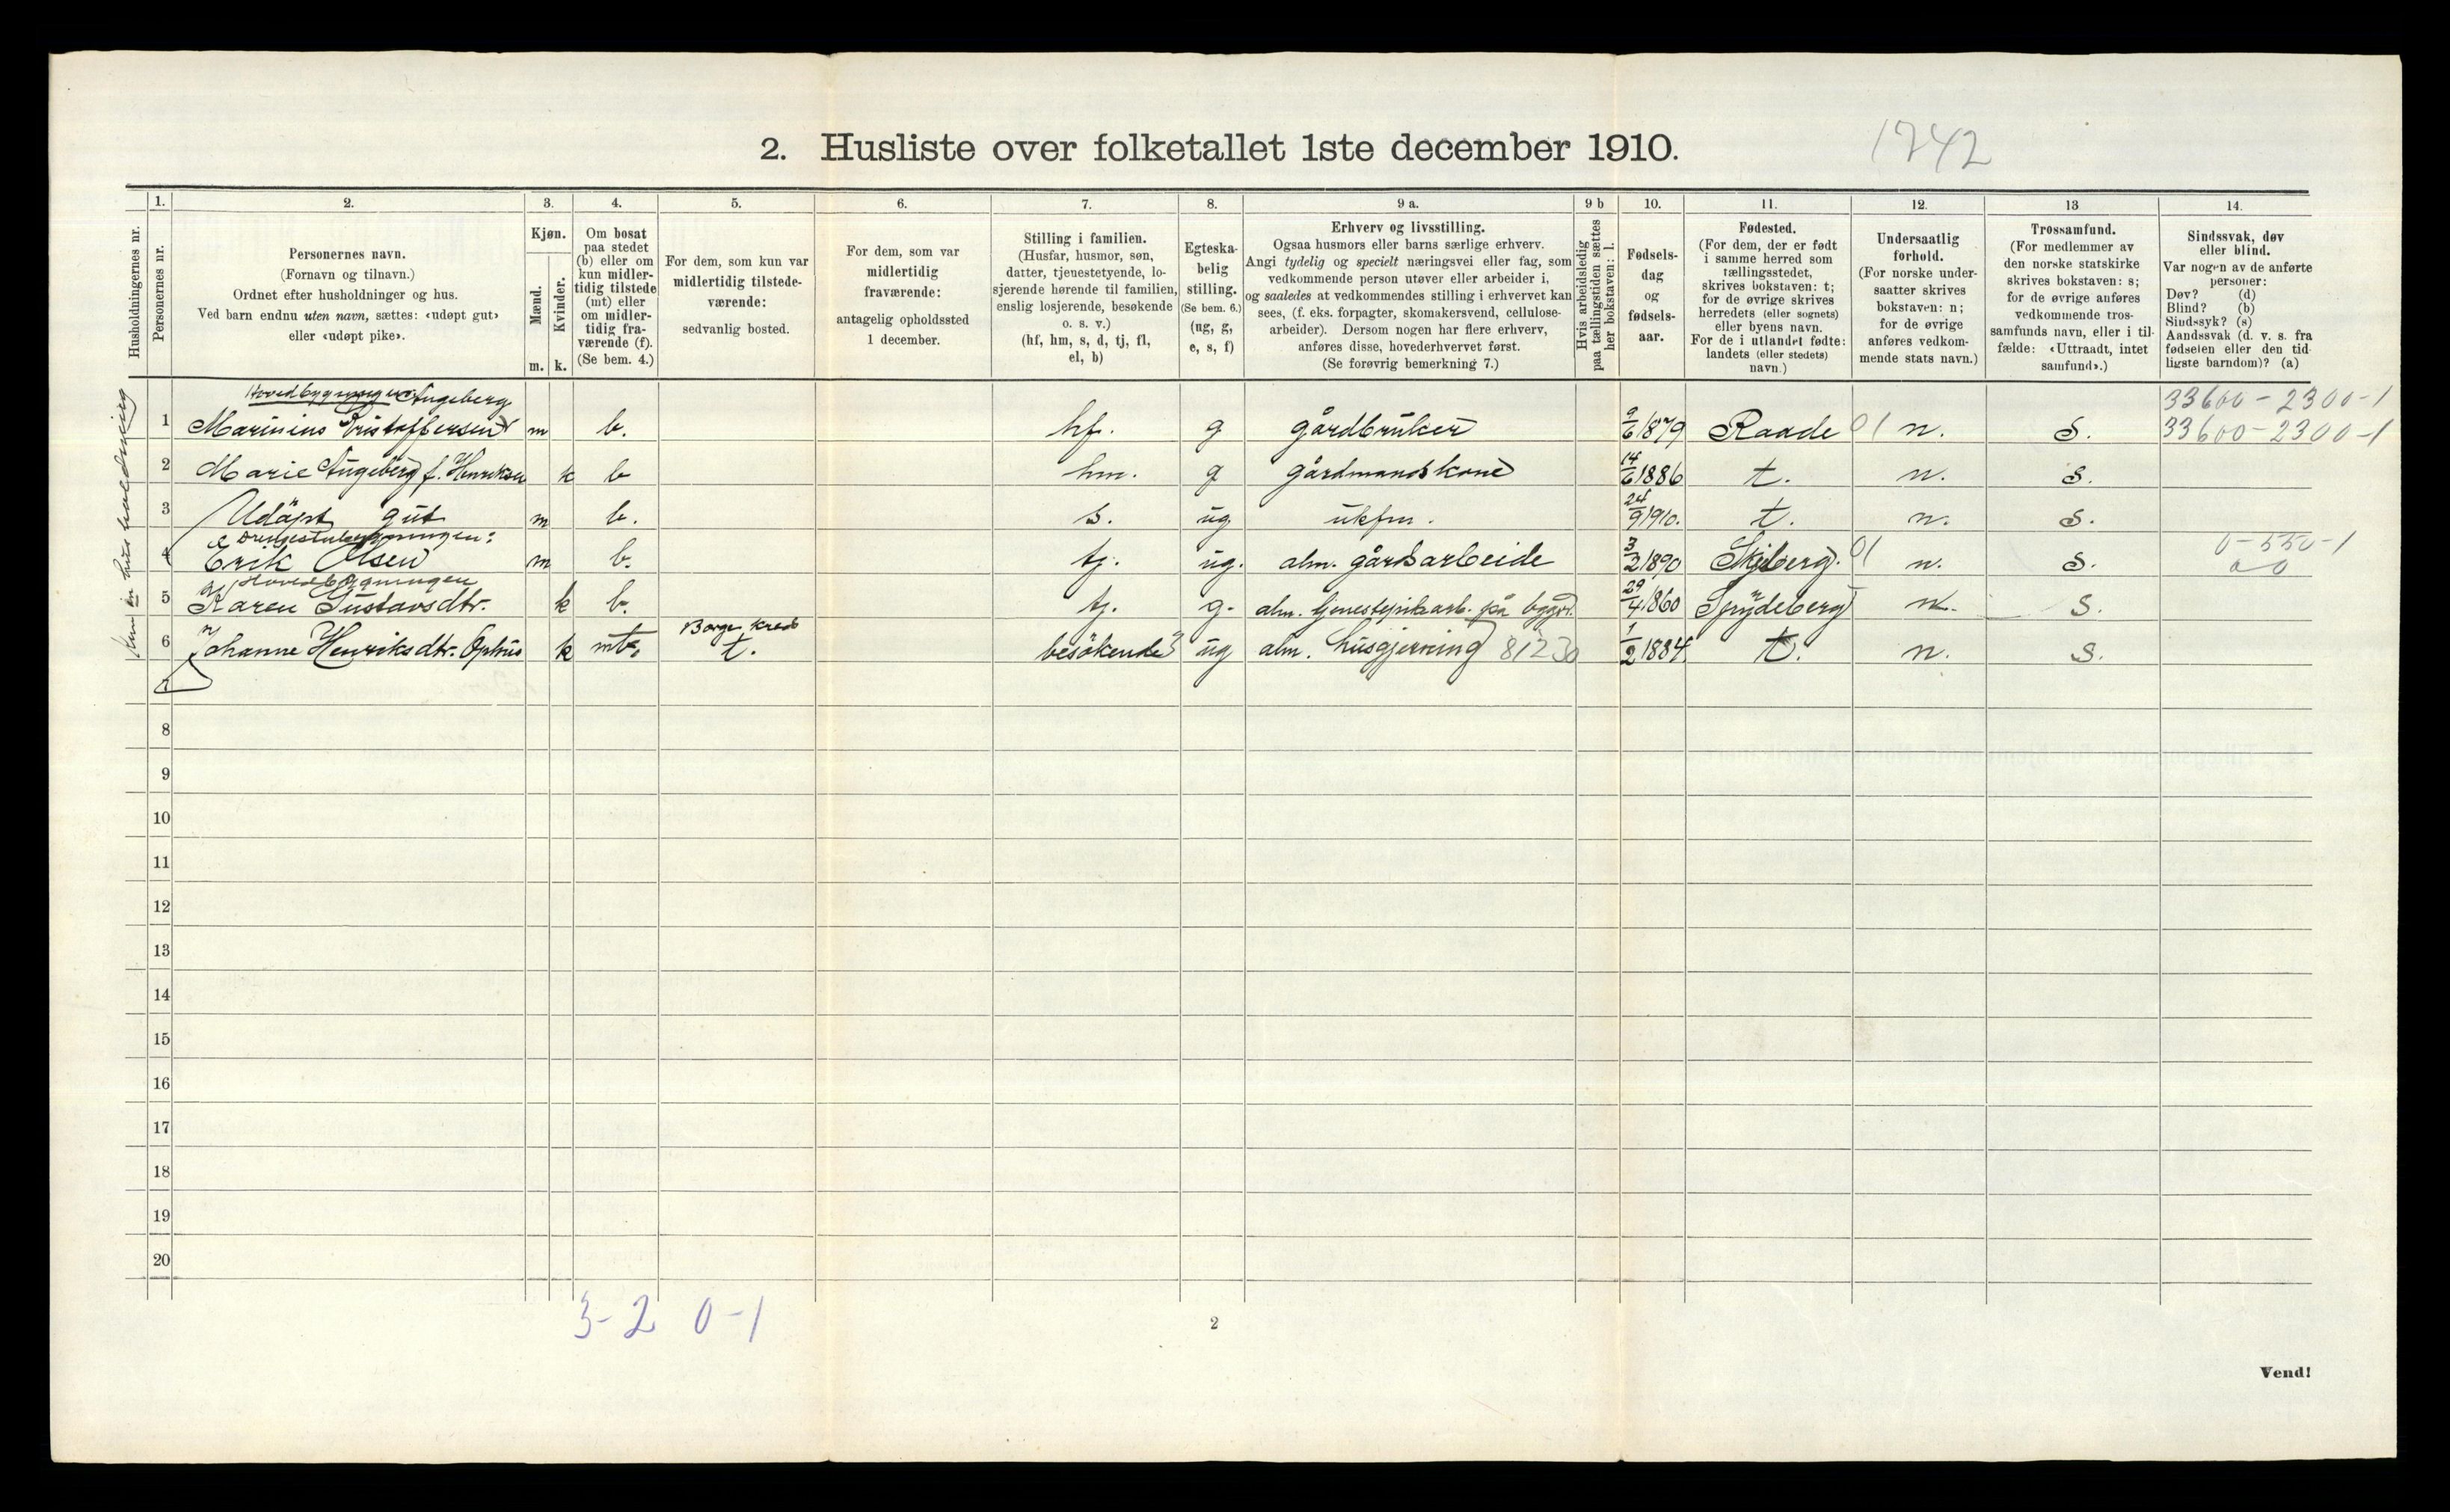 2. Husliste over folketallet 1ste december 1910.
1242
1.
2.
3.
4.
5.
6.
7.
8.
9 a.
9 b
10.
11.
12.
13
14.
Husholdningernes nr.
Personernes nr.
Personernes navn.
(Fornavn og tilnavn.)
Ordnet efter husholdninger og hus.
Ved barn endnu uten navn, sættes: «udøpt gut»
eller «udøpt pike».
Kjøn.
Mænd.
Kvinder.
m. k.
Om bosat
paa stedet
(b) eller om
kun midler-
tidig tilstede
(mt) eller
om midler-
tidig fra-
værende (f).
(Se bem. 4.)
For dem, som kun var
midlertidig tilstede-
værende:
sedvanlig bosted.
For dem, som var
midlertidig
fraværende:
antagelig opholdssted
1 december.
Stilling i familien.
(Husfar, husmor, søn,
datter, tjenestetyende, lo-
sjerende hørende til familien,
enslig losjerende, besøkende
o. s. v.)
(hf, hm, s, d, tj, fl,
el, b)
Egteska-
belig
stilling.
(Se bem. 6.)
(ug, g,
e, s, f)
Erhverv og livsstilling.
Ogsaa husmors eller barns særlige erhverv.
Angi tydelig og specielt næringsvei eller fag, som
vedkommende person utøver eller arbeider i,
og saaledes at vedkommendes stilling i erhvervet kan
sees, (f. eks. forpagter, skomakersvend, cellulose-
arbeider). Dersom nogen har flere erhverv,
anføres disse, hovederhvervet først.
(Se forøvrig bemerkning 7.)
Hvis arbeidsledig
paa tællingstiden sættes
her bokstaven: l.
Fødsels-
dag
og
fødsels-
aar.
Fødested.
(For dem, der er født
i samme herred som
tællingsstedet,
skrives bokstaven: t;
for de øvrige skrives
herredets (eller sognets)
eller byens navn.
For de i utlandet fødte:
landets (eller stedets)
navn.)
Undersaatlig
forhold.
(For norske under-
saatter skrives
bokstaven: n;
for de øvrige
anføres vedkom-
mende stats navn.)
Trossamfund.
(For medlemmer av
den norske statskirke
skrives bokstaven: s;
for de øvrige anføres
vedkommende tros-
samfunds navn, eller i til-
fælde: «Uttraadt, intet
samfund».)
Sindssvak, døv
eller blind.
Var nogen av de anførte
personer:
Døv? (d)
Blind? (b)
Sindssyk? (s)
Aandssvak (d. v. s. fra
fødselen eller den tid-
ligste barndom)? (a)
Kun en hus holdning
Hovedbygningen Augeberg 33600-2300-1
1 Marinius Kristoffersen m b. hf. g gårdbruker 9/6 1879 Raade 01 n. s. 33600-2300-1
2 Marie Augeberg f. Henriksen k b hm. g gårdmandskone 14/6 1886 t. n. s.
3 Udöpt gut m b. s. ug ukfm. 24/9 1910. t. n. s.
Drengestubygningen: 0-550-1
4 Erik Olsen m b. tj. ug. alm. gårdsarbeide 3/2 1890 Skjeberg. 01 n. s. 0 0
Hovedbygningen
5 Karen Gustavsdtr. k b. tj. g. alm. tjenestepikearb. på bygd. 29/4 1860 Spydeberg n. s.
Borge kred
6 Johanne Henriksdtr. Ophus k mt. t. besökende ug alm. husgjerning 81230 1/2 1884 t. n. s.
7
8
9
10
11
12
13
14
15
16
17
18
19
20
3-2 0-1
2
Vend!